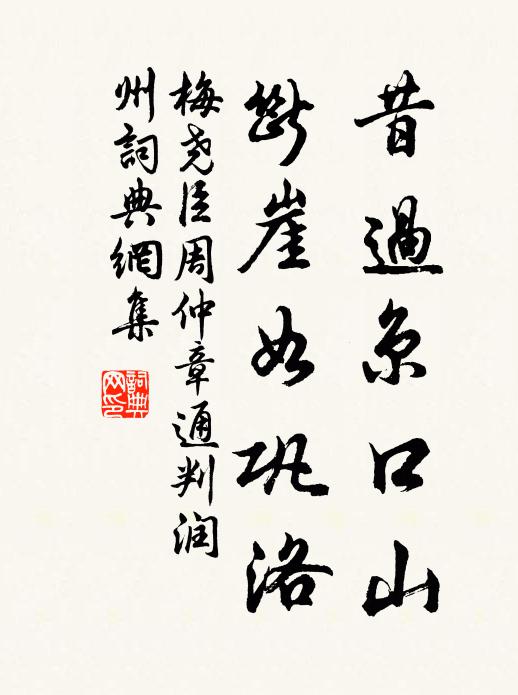 昔過京口山
斷崖如鞏洛
梅尧臣周仲章通判润
州詞典網集
詞典
网印